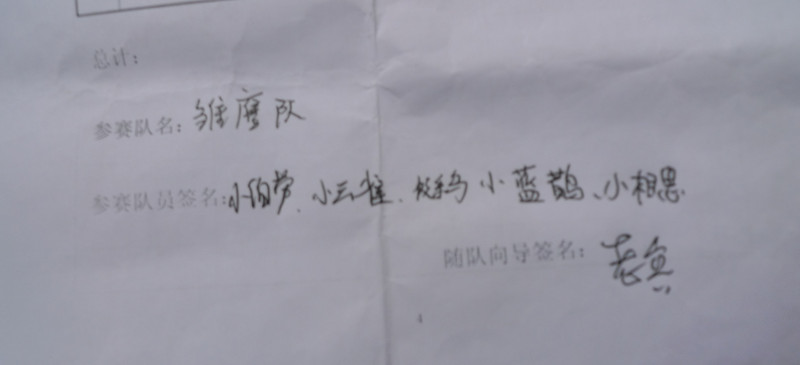 总计：
参赛队名：雏鹰队
参赛队员签名：小伯劳、小云雀、小蓝鹊、小相思
随队向导签名：老鱼